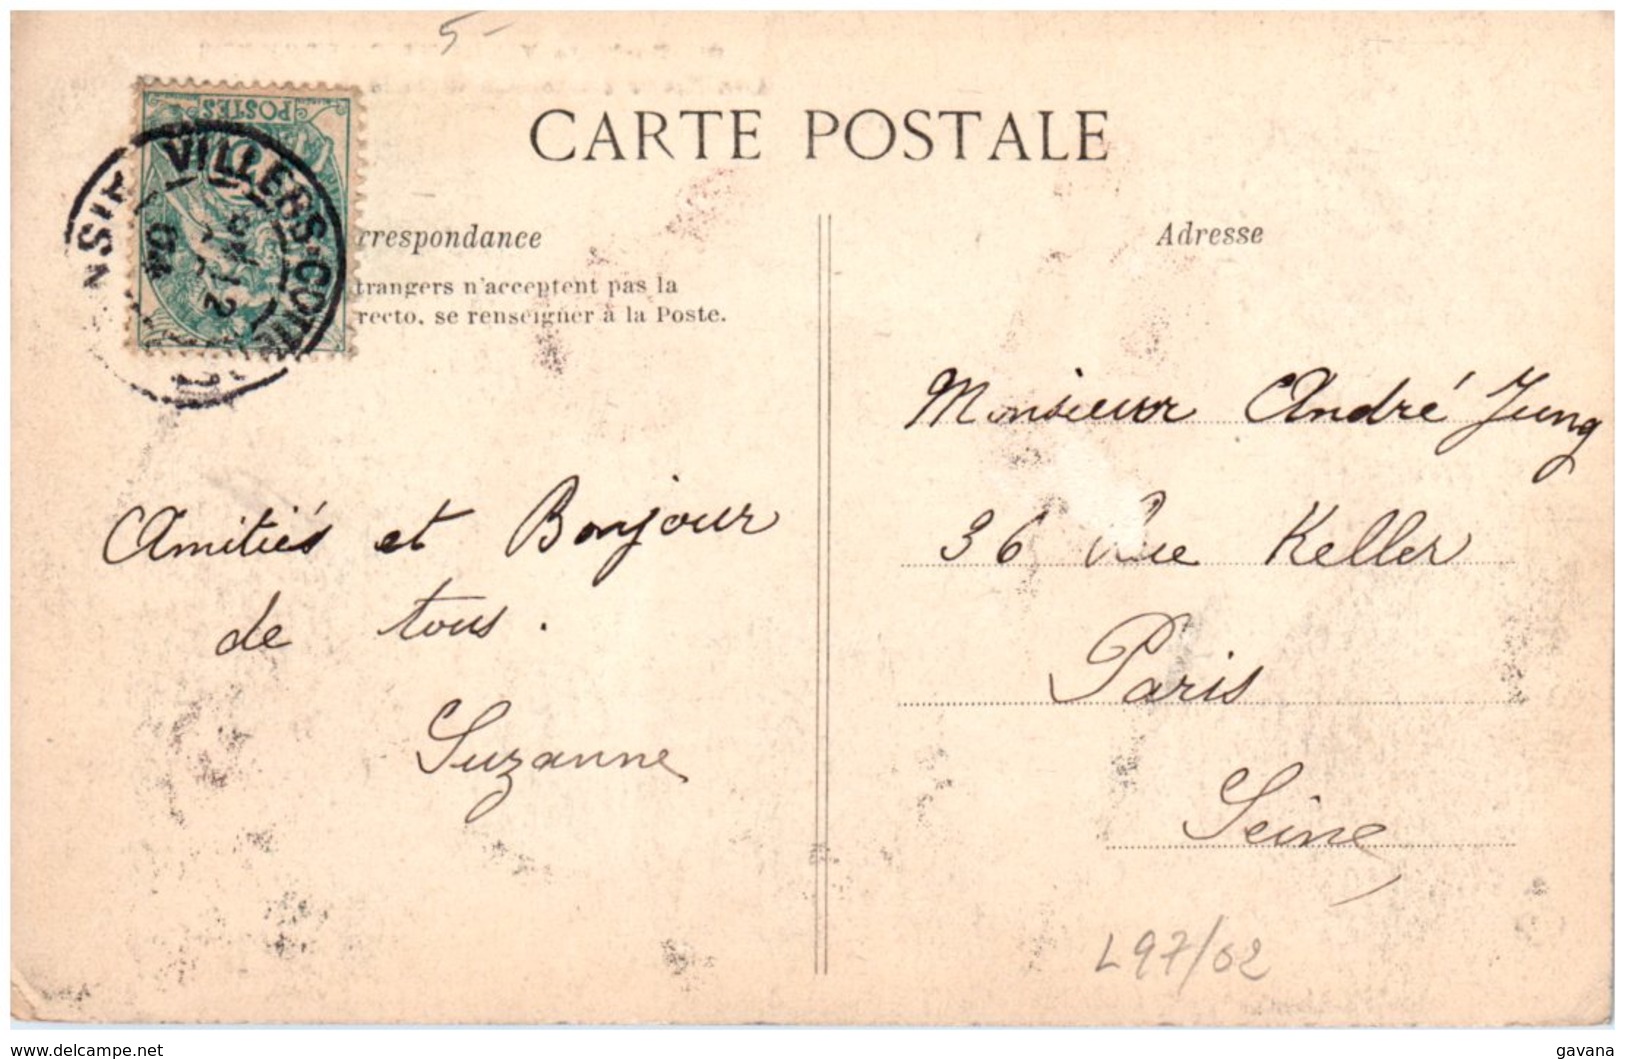 5-
CARTE POSTALE
rrespondance
trangers n'acceptent pas la
recto, se renseigner à la Poste.
Adresse
POSTES
VILLERS-COTTE
04
Monsieur André Jung
36 Rue Keller
Paris
Seine
Amitiés et Bonjour
de tous.
Suzanne
L97/02
www.delcampe.net
gavana